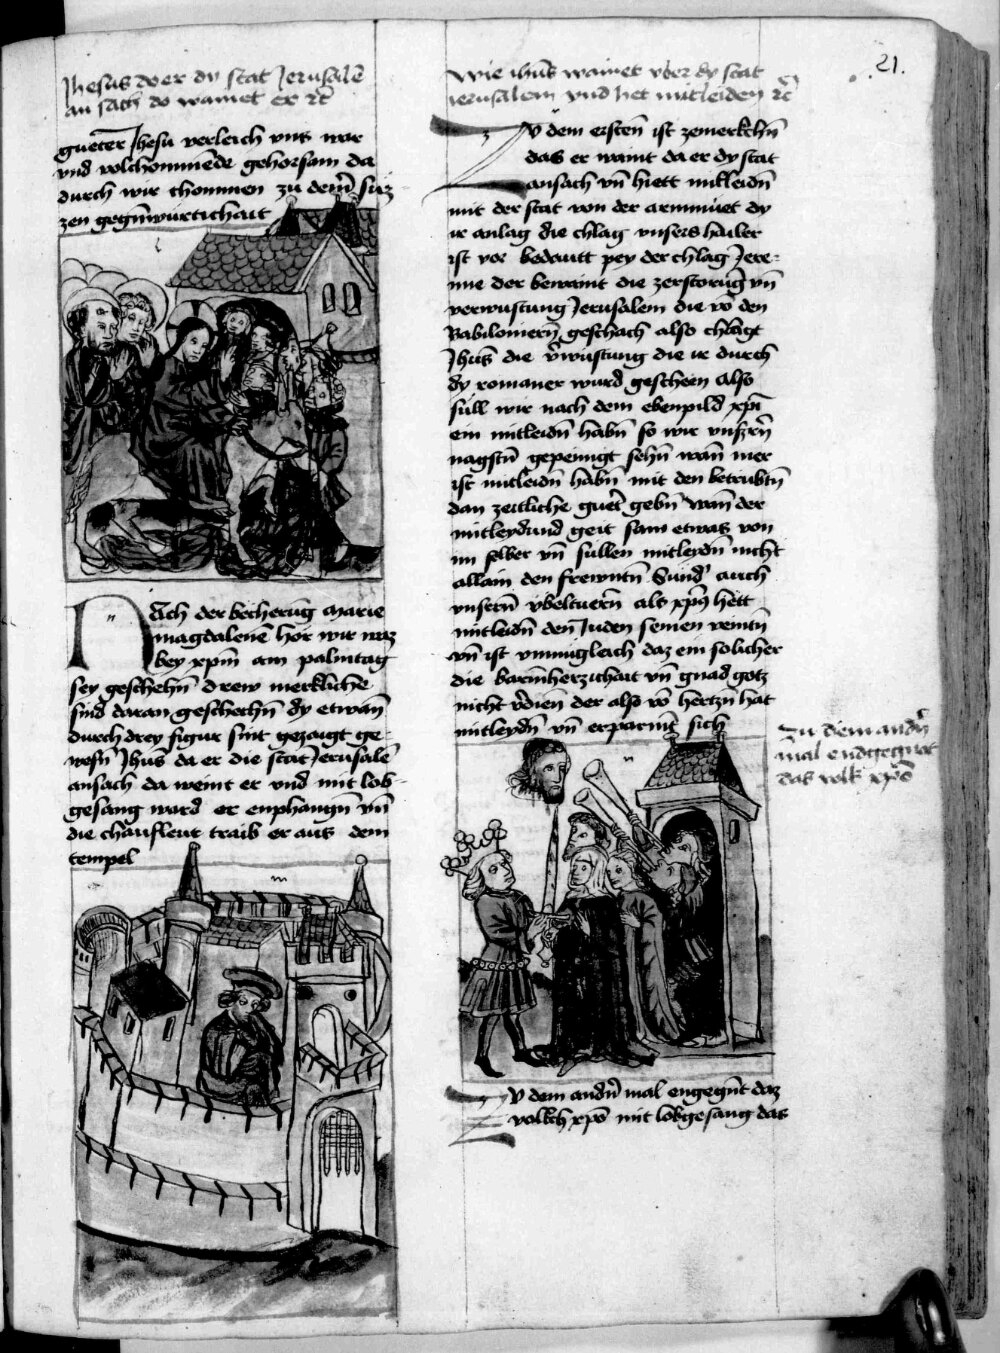 21.
Jhesus do er dy stat Jerusalē
an sach do wainet er ꝛc̄
gueter Jhesu verleich vns war
vnd volchommēde gehorsam da
durch wir chommen zu dem̄ suz
zen gegn̄wurtichait
NAch der becherūg marie
magdalenē hor wir waz
bey xpm̄ am palmtag
sey geschehn̄ drew merkliche
sind daran geschechn̄ dy etwan̄
durch drey figur sint gezaigt ge-
wesn̄ Jhūs da er die stat Jerusalē
ansach da weint er vnd mit lob-
gesang ward er enphangn̄ vn̄
die chaufleut traib er aus dem
tempel
wie ihūs wainet vber dy stat
ierusalem vnd het mitleiden ꝛc̄
Zv dem ersten̄ ist zemerkchn̄
das er waint da er dy stat
ansach vn̄ hiett mitleidn̄
mit der stat von der armmuet dy
ir anlag die chlag vnsers hailer
ist vor bedeutt pey der chlag Jere-
mie der bewaint die zerstorūg vn̄
verwustung Jerusalem die vō den
Babiloniern̄ geschach also chlagt
Jhūs die v̄wustung die ir durch
dy romaner wurd geschehn Also
sull wir nach dem ebenpild xpī
ein mitleidn̄ habn̄ so wir vnsern̄
nagstn̄ gepeinigt sehn̄ wan̄ mer
ist mitleidn̄ habn̄ mit den betrubtn̄
dan zeitliche guet̄ gebn̄ wan̄ der
mitleydund geit sam etwas von
im selber vn̄ sullen mitleydn̄ nicht
allain den frewntn̄ Sund̄ auch
vnsern̄ vbeltuern̄ als xpūs hett
mitleidn̄ den Juden seinen veintn̄
vn̄ ist vnmugleich daz ein solicher
die barm̄herzichait vn̄ gnad gotz
nicht v̄dien̄ der also vō hertzn̄ hat
mitleydn̄ vn̄ erparmt̄ sich
Zu dem andn̄
mal endgegnet
das volk xpō
Zv dem andn̄ mal engegn̄t daz
volkch xpō mit lobgesang das